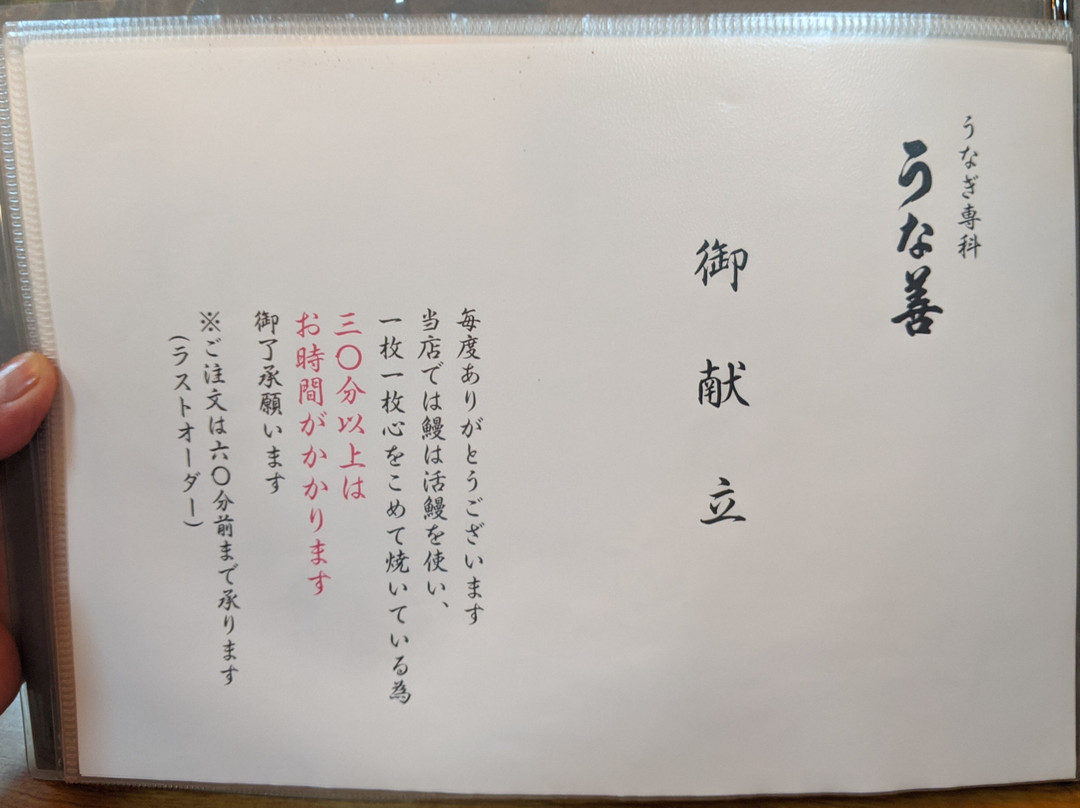 うなぎ専科
うな善
御献立
毎度ありがとうございます
当店では鰻は活鰻を使い、
一枚一枚心をこめて焼いている為
三〇分以上は
お時間がかかります
御了承願います
※ご注文は六〇分前まで承ります
(ラストオーダー)